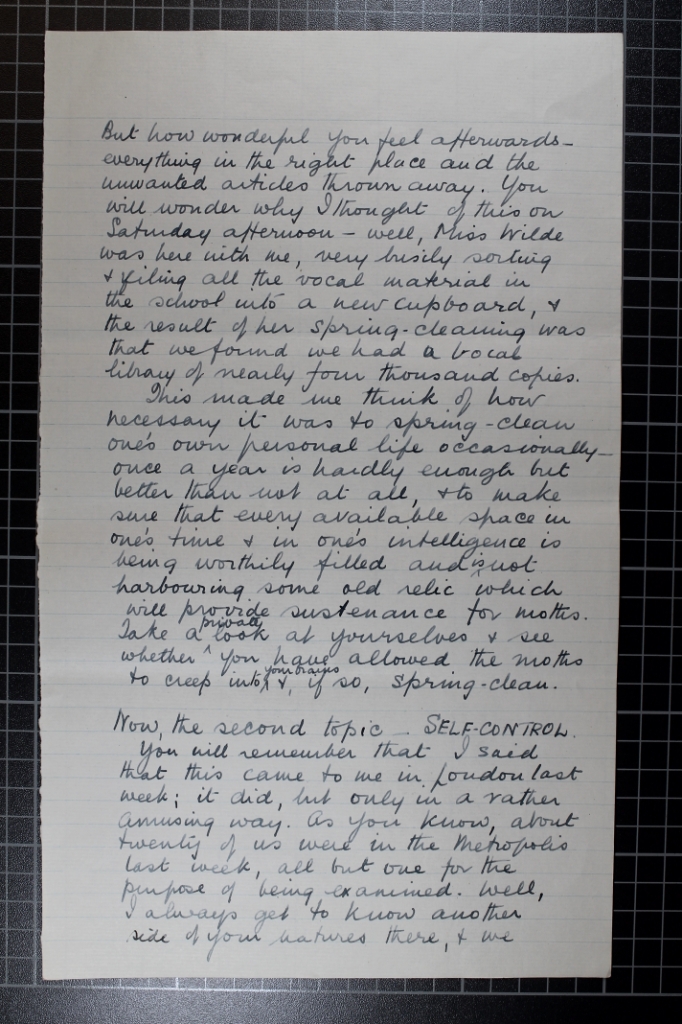 But how wonderful you feel afterwards –
everything in the right place and the
unwanted articles thrown away. You
will wonder why I thought of this on
Saturday afternoon – well, Miss Wilde
was here with me, very busily sorting
& filing all the vocal material in
the school into a new cupboard, &
the result of her spring-cleaning was
that we found we had a vocal
library of nearly four thousand copies.
This made me think of how
necessary it was to spring-clean
one's own personal life occasionally –
once a year is hardly enough but
better than not at all, & to make
sure that every available space in
one's time & in one's intelligence is
being worthily filled and is not
harbouring some old relic which
will provide sustenance for moths.
Take a look at yourselves & see
privately
whether you have allowed the moths
to creep into your brains &, if so, spring-clean.
Now, the second topic – SELF-CONTROL.
You will remember that I said
that this came to me in London last
week; it did, but only in a rather
amusing way. As you know, about
twenty of us were in the Metropolis
last week, all but one for the
purpose of being examined. Well,
I always get to know another
side of your natures there, & we